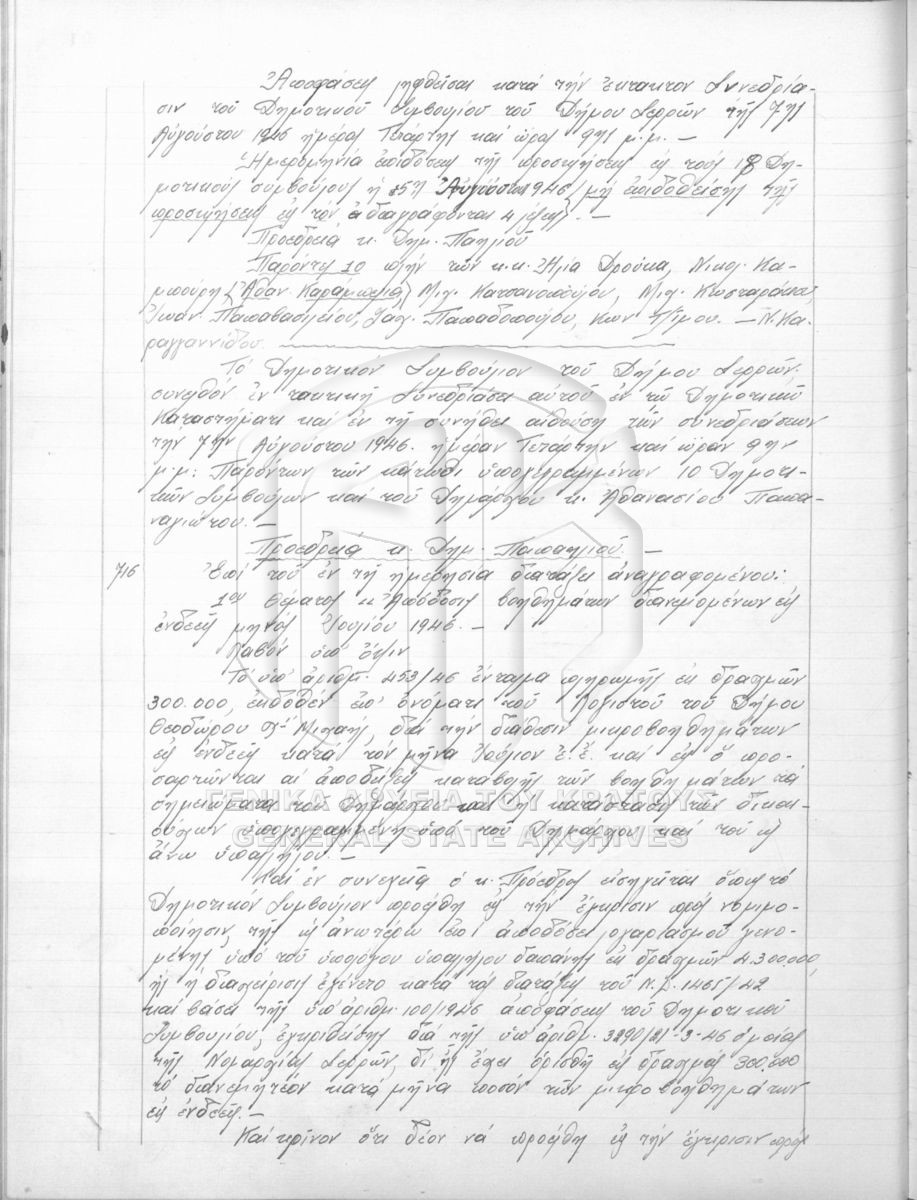 Ἀποφάσεις ληφθεῖσαι κατά τήν ἔκτακτον Συνεδρία-
σιν τοῦ Δημοτικοῦ Συμβουλίου τοῦ Δήμου Σερρῶν τῆς 7ης
Αὐγούστου 1946 ἡμέρας Τετάρτης καί ὥρας 9ης μ.μ. –
Ἡμερομηνία ἐπιδόσεως τῆς προσκλήσεως εἰς τούς 18 Δη-
μοτικούς συμβούλους ἡ 5η Αὐγούστου 1946 μή ἐπιδοθείσης τῆς
προσκλήσεως εἰς τόν διαγράφονται 4 λέξεις. –
Προεδρεία κ. Δημ. Παπλιοῦ
Παρόντες 10 πλήν τῶν κ.κ. Ἠλία Δρούκα, Νικολ. Κα-
μπούρη, Ἀθαν. Καραμπελιᾶ, Μιχ. Κατσανοπούλου, Μιχ. Κωσταράκου,
Ἰωάν. Παπαβασιλείου, Παπαδοπούλου, Κων. Δήμου. – Ν. Κα-
ραγιαννίδου.
Τό Δημοτικόν Συμβούλιον τοῦ Δήμου Σερρῶν
συνελθόν ἐν τακτικῇ Συνεδριάσει αὐτοῦ ἐν τῷ Δημοτικῷ
Καταστήματι καί ἐν τῇ συνήθει αἰθούσῃ τῶν συνεδριάσεων
τήν 7ην Αὐγούστου 1946. ἡμέραν Τετάρτην καί ὥραν 9ην
μ.μ: Παρόντων τῶν κάτωθι ὑπογεγραμμένων 10 Δημοτι-
κῶν Συμβούλων καί τοῦ Δημάρχου κ. Ἀθανασίου Παπα-
ναγιώτου. –
Προεδρεία κ. Δημ. Παπαπλιοῦ. –
716
Ἐπί τοῦ ἐν τῇ ἡμερησίᾳ διατάξει ἀναγραφομένου:
1ου θέματος "Ἀπόδοσις βοηθημάτων διανεμομένων εἰς
ἐνδεεῖς μηνός Ἰουλίου 1946. –
Λαβόν ὑπ' ὄψιν
Τό ὑπ' ἀριθμ. 453/46 ἔνταλμα πληρωμῆς ἐκ δραχμῶν
300.000, ἐκδοθέν ἐπ' ὀνόματι τοῦ Λογιστοῦ τοῦ Δήμου
Θεοδώρου Μιχαήλ, διά τήν διάθεσιν μικροβοηθημάτων
εἰς ἐνδεεῖς κατά τόν μῆνα Ἰούλιον ἐ.ἔ. καί εἰς ὅ προ-
σαρτῶνται αἱ ἀποδείξεις καταβολῆς τῶν βοηθημάτων τά
σημειώματα τοῦ Δημάρχου καί ἡ κατάστασις τῶν δικαι-
ούχων ὑπογεγραμμένη ὑπό τοῦ Δημάρχου καί τοῦ ὡς
ἄνω ὑπαλλήλου. –
ΓΕΝΙΚΑ ΑΡΧΕΙΑ ΤΟΥ ΚΡΑΤΟΥΣ
GENERAL STATE ARCHIVES
Καί ἐν συνεχείᾳ ὁ κ. Πρόεδρος εἰσηγεῖται ὅπως τό
Δημοτικόν Συμβούλιον προέλθῃ εἰς τήν ἔγκρισιν πρός νομιμο-
ποίησιν, τῆς ὡς ἀνωτέρω ἐπί ἀποδόσει λογαριασμοῦ γενο-
μένης ὑπό τοῦ ὑπολόγου ὑπαλλήλου δαπάνης ἐκ δραχμῶν 4.300.000,
ἧς ἡ διαχείρισις ἐγένετο κατά τάς διατάξεις τοῦ Ν.Δ. 1465/42
καί βάσει τῆς ὑπ' ἀριθμ. 100/1946 ἀποφάσεως τοῦ Δημοτικοῦ
Συμβουλίου, ἐγκριθείσης διά τῆς ὑπ' ἀριθμ. 3290/21-3-46 ὁμοίας
τῆς Νομαρχίας Σερρῶν, δι' ἧς ἔχει ὁρισθῆ εἰς δραχμάς 300.000
τό διανεμητέον κατά μῆνα ποσόν τῶν μικροβοηθημάτων
εἰς ἐνδεεῖς. –
Καί κρῖνον ὅτι δέον νά προέλθῃ εἰς τήν ἔγκρισιν πρός